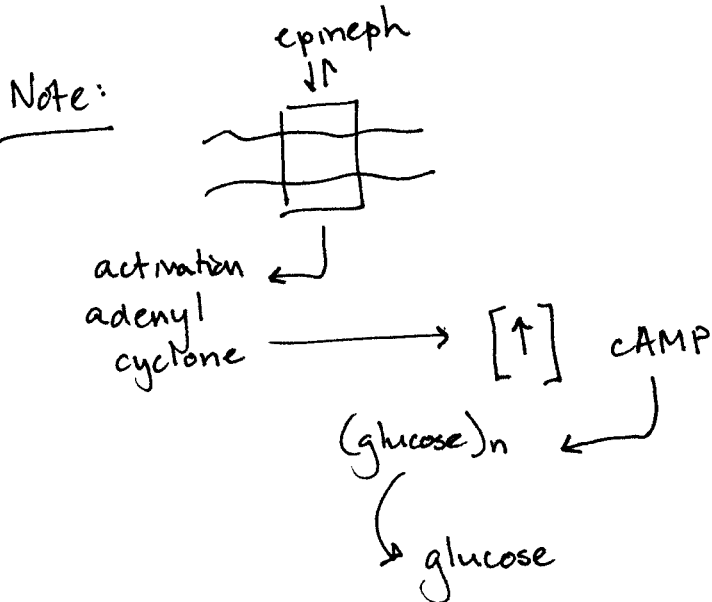 epineph
Note:
activation
adenyl
cyclone
[↑] cAMP
(glucose)n
glucose